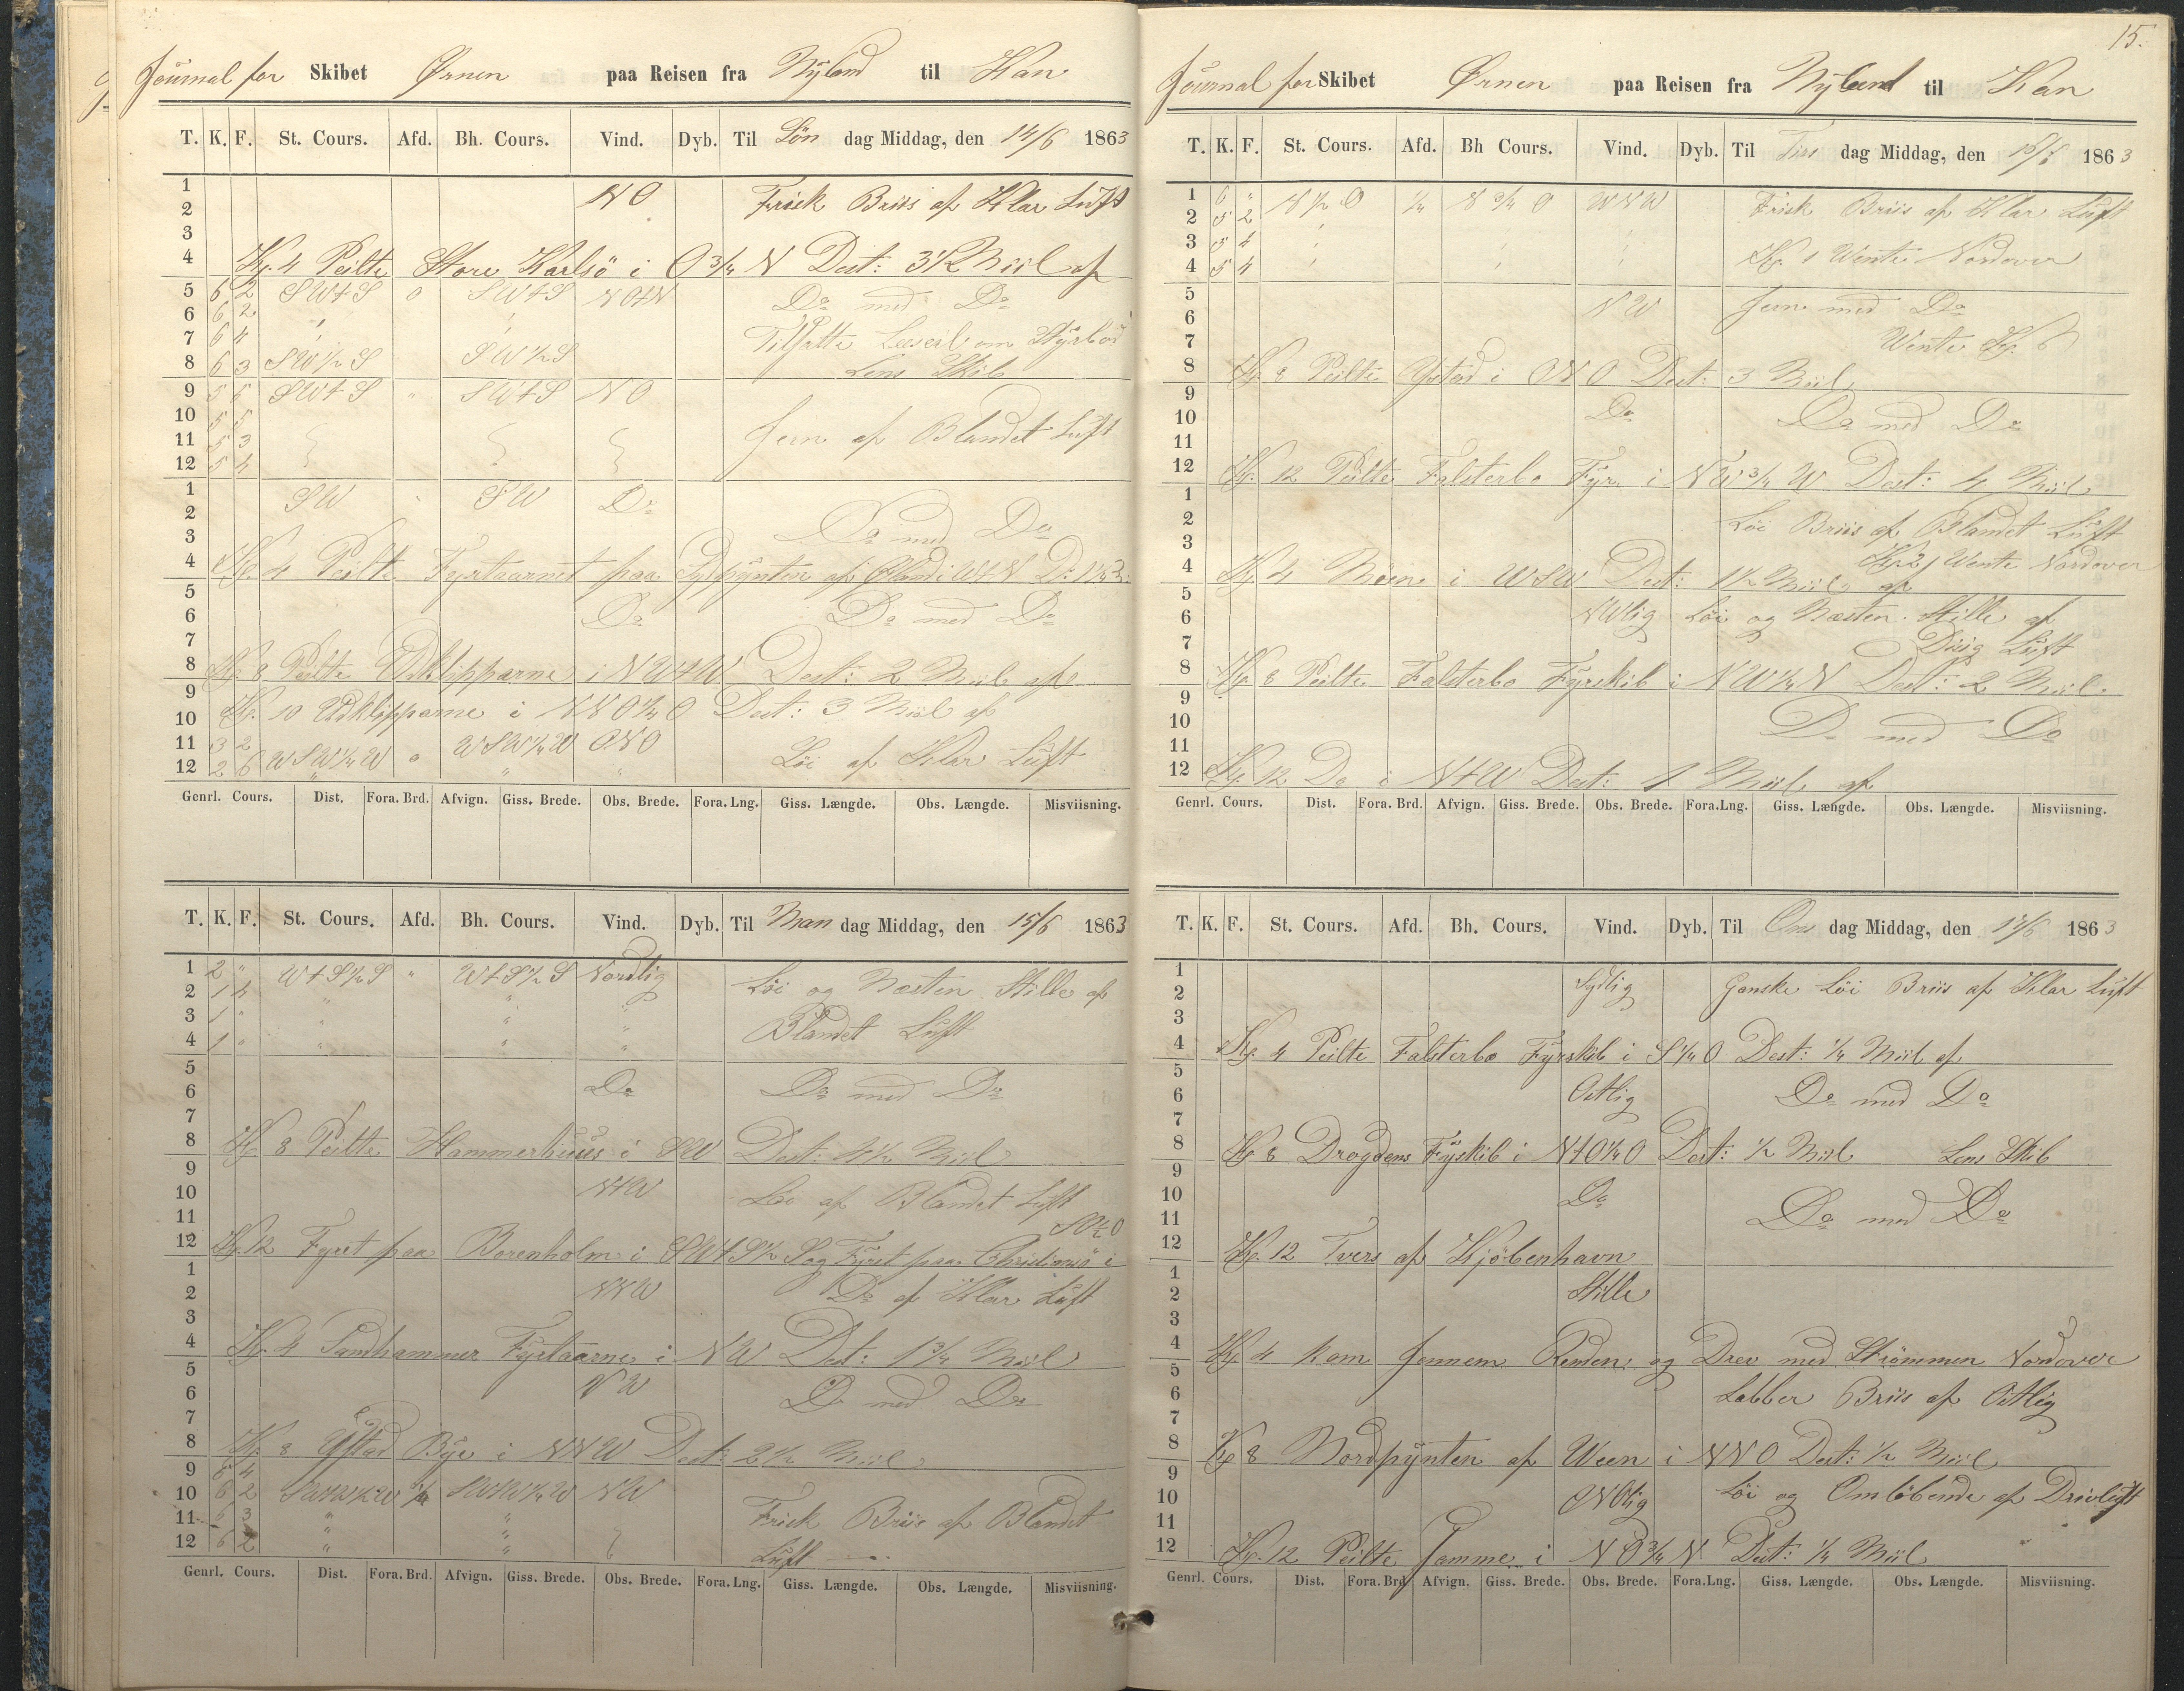 Journal for Skibet Ørnen paa Reisen fra Nyland til Han
T. K. F. St. Cours. Afd. Bh. Cours. Vind. Dyb. Til Søn dag Middag, den 14/6 1863
1 NO Frisk Briis af Klar Luft
2
3
4 Kl. 4 Peilte Store Karlsö i O 3/4 N Dest: 3 1/2 Miil af
5 6 2 SWtS 0 SWtS NOtN Do med Do
6 6 2
7 6 4 Tilsatte Læseil om Styrbor
8 6 3 SW 1/2 S SW 1/2 S Lens Skib
9 5 5 SWtS " SWtS NO
10 5 5 Jevn af Blandet Luft
11 5 3
12 5 4
1 SW " SW Do
2
3 Do med Do
4 Kl. 4 Peilte Fyrtaarnet paa Sydpynten af Øland i WtN
5
6 Do Do med Do
7
8 Kl. 8 Peilte Udklipparne i NWtW Dest: 2 Miil af
9
10 Kl. 10 Udklipparne i NNO 1/4 O Dest: 3 Miil af
11 3 2 WSW 1/4 W 0 WSW 1/4 W ONO Löi af Klar Luft
12 2 6 " " "
Genrl. Cours. Dist. Fora. Brd. Afvign. Giss. Brede. Obs. Brede. Fora. Lng. Giss. Længde. Obs. Længde. Misviisning.
T. K. F. St. Cours. Afd. Bh. Cours. Vind. Dyb. Til Man dag Middag, den 15/6 1863
1 2 " WtS 1/2 S " WtS 1/2 S Nordlig Löi og Næsten Stille af
2 1 4 " " "
3 1 " " " " Blandet Luft
4 1 " " " "
5
6 Do Do med Do
7
8 Kl. 8 Peilte Hammerhuus i SW Dest: 4 1/2 Miil
9
10 NtW Löi af Blandet Luft
11 SO 1/2 O
12 Kl. 12 Fyret paa Borenholm i SWtS 1/2 S og Fyret paa Christiansö i
1
2 NNW Do af Klar Luft
3
4 Kl. 4 Sandhammer Fyrtaarne i NW Dest: 1 3/4 Miil
5
6 NW Do med Do
7
8 Kl. 8 Ystad Bye i NNW Dest: 2 1/2 Miil
9 6 4
10 6 2 SWtW 1/2 W 1/4 SWtW 1/4 W NW
11 6 3 " " Frisk Briis af Blandet
12 6 2 " " Luft
Genrl. Cours. Dist. Fora. Brd. Afvign. Giss. Brede. Obs. Brede. Fora. Lng. Giss. Længde. Obs. Længde. Misviisning.
15.
Journal for Skibet Ørnen paa Reisen fra Nyland til Han
T. K. F. St. Cours. Afd. Bh Cours. Vind. Dyb. Til Tirs dag Middag, den 16/6 1863
1 6 " N 1/2 O 1/4 N 3/4 O WNW Frisk Briis af Klar Luft
2 5 2
3 5 4
4 5 4 Kl. 1 Wente Nordover
5
6 NW Jevn med Do
7 Wente Kl. 6
8 Kl. 8 Peilte Ystad i ONO Dest: 3 Miil
9
10 Do Do med Do
11
12 Kl. 12 Peilte Falsterbo Fyr i NW 3/4 W Dest: 4 Miil
1
2 Löi Briis af Blandet Luft
3 Kl. 2 Wente Nordover
4 Kl. 4 Möen i WSW Dest: 1 1/2 Miil af
5
6 NWlig Löi og Næsten Stille af
7 Disig Luft
8 Kl. 8 Peilte Falsterbo Fyrskib i NW 1/4 N Dest: 2 Miil
9
10 Do med Do
11
12 Kl. 12 Do i NtW Dest: 1 Miil af
Genrl. Cours. Dist. Fora. Brd. Afvign. Giss. Brede. Obs. Brede. Fora.Lng. Giss. Længde. Obs. Længde. Misviisning.
T. K. F. St. Cours. Afd. Bh. Cours. Vind. Dyb. Til Ons dag Middag, den 17/6 1863
1 Sydlig Ganske Löi Briis af Klar Luft
2
3
4 Kl. 4 Peilte Falsterbo Fyrskib i S 1/4 O Dest: 1/4 Miil af
5
6 Ostlig Do med Do
7
8 Kl. 8 Drogdens Fyskib i NtO 1/4 O Dest: 1/2 Miil Lens Skib
9
10 Do Do med Do
11
12 Kl. 12 Tvers af Kjöbenhavn
1
2 Stille
3
4 Kl. 4 kom Jennem Renden og Drev med Strömmen Nordover
5
6 Labber Briis af Ostlig
7
8 Kl 8 Nordpynten af Ween i NNO Dest: 1/2 Miil
9
10 ONOlig Löi og Omlöbende af Drivluft
11
12 Kl. 12 Peilte Samme i NO 3/4 N Dest: 1/4 Miil
Genrl. Cours. Dist. Fora. Brd. Afvign. Giss. Brede. Obs. Brede. Fora.Lng. Giss. Længde. Obs. Længde. Misviisning.